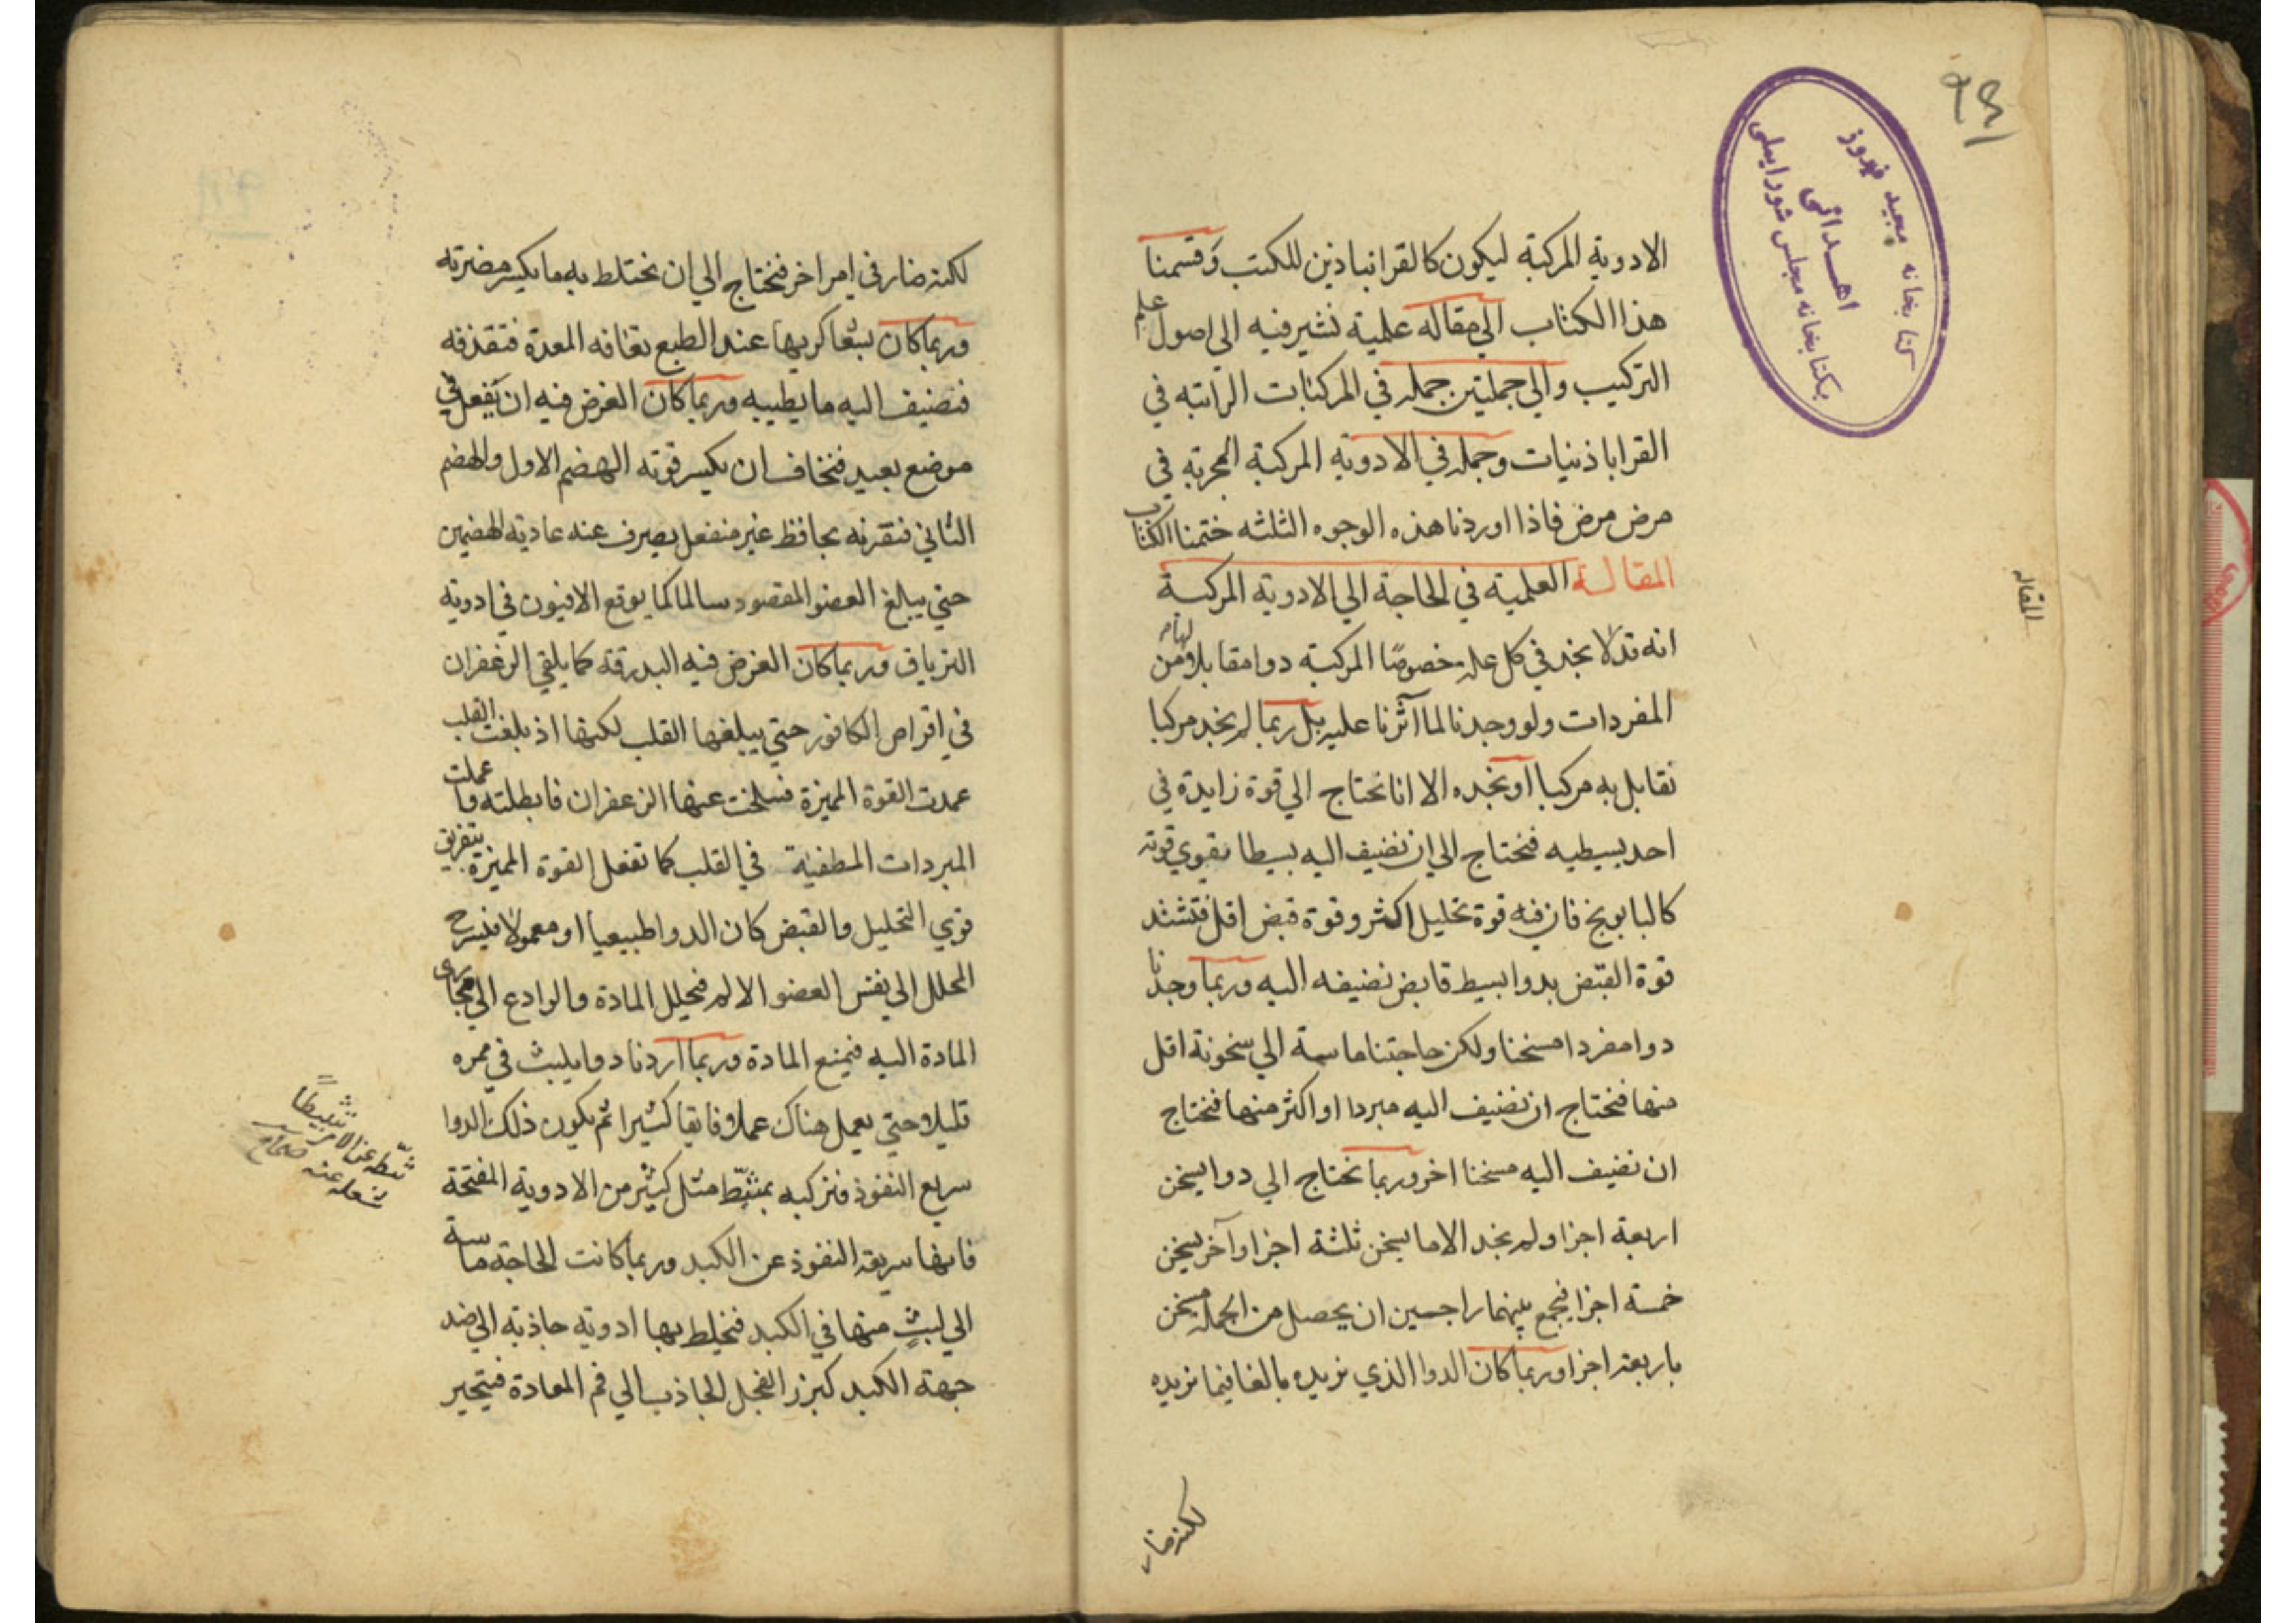 كتابخانه مجيد فيروز
اهدائى
بكتابخانه مجلس شوراىملى
الادوية المركبة ليكون كالقرانبادين للكتب وقسمنا
هذا الكتاب الي مقاله علمية نشير فيه الى اصول علم
التركيب والي جملتين جمله في المركبات الراتبه في
القراباذنيات وجمله في الادوية المركبة المجربه في
مرض مرض فاذا اوردنا هذه الوجوه الثلثه ختمنا الكتاب
المقالة العلمية في الحاجة الي الادوية المركبة
انه قد لا نجد في كل علة خصوصًا المركبة دوا مقابلا لها من
المفردات ولو وجدنا لما آثرنا عليه بل ربما لم نجد مركبا
نقابل به مركبا او نجده الا انا نحتاج الي قوة زايدة في
احد بسيطيه فنحتاج الي ان نضيف اليه بسيطا يقوي قوته
كالبابونج فان فيه قوة تحليل اكثر وقوة قبض اقل فتشتد
قوة القبض بدوا بسيط قابض نضيفه اليه وربما وجدنا
دوا مفردا مسخنا ولكن حاجتنا ماسة الي سخونة اقل
منها فنحتاج ان نضيف اليه مبردا او اكثر منها فنحتاج
ان نضيف اليه مسخنا اخر وربما نحتاج الي دوا يسخن
اربعة اجزا ولم نجد الا ما يسخن ثلثة اجزا وآخر يسخن
خمسة اجزا فنجمع بينهما راجين ان يحصل من الجملة مسخن
باربعة اجزا وربما كان الدوا الذي نريده بالغا فيما نريده
لكنه ضار
المقاله
لكنه ضار في امر اخر فنحتاج الي ان نختلط به ما يكسر مضرته
وربما كان بشعا كريها عند الطبع تعافه المعدة فتقذفه
فنضيف اليه ما يطيبه وربما كان الغرض فيه ان يفعل في
موضع بعيد فنخاف ان يكسر قوته الهضم الاول والهضم
الثاني فنقرنه بحافظ غير منفعل يصرف عنه عادية الهضمين
حتي يبلغ العضو المقصود سالما كما يوقع الافيون في ادوية
الترياق وربما كان الغرض فيه البدرقة كما يلقي الزعفران
في اقراص الكافور حتي يبلغها القلب لكنها اذ بلغت القلب
عمدت القوة المميزة فسلخت عنها الزعفران فابطلته وعملت
المبردات المطفية في القلب كما تفعل القوة المميزة بتفريق
قوي التحليل والقبض كان الدوا طبيعيا او معمولا فيسرح
المحلل الي نفس العضو الالم فيحلل المادة والرادع الي مجاري
المادة اليه فيمنع المادة وربما اردنا دوا يلبث في ممره
قليلا حتي يعمل هناك عملا فايقا كثيرا ثم يكون ذلك الدوا
سريع النفوذ فنركبه بمثبّط مثل كثير من الادوية المفتحة
فانها سريعة النفوذ عن الكبد وربما كانت الحاجة ماسة
الي لبثٍ منها في الكبد فنخلط بها ادوية جاذبة الي ضد
جهة الكبد كبزر الفجل الجاذب الي فم المعدة فيتحير
ثبّطه عن الامر تثبيطًا
شغله عنه صحاح